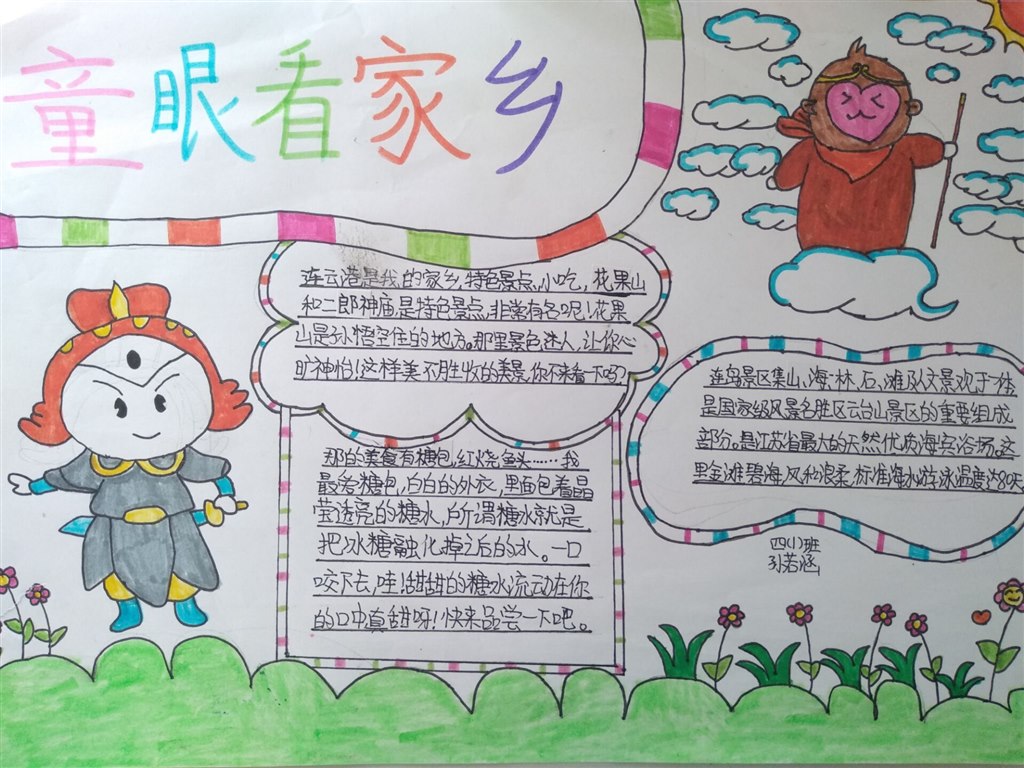 童眼看家乡
连云港是我的家乡,特色景点,小吃,花果山
和二郎神庙是特色景点,非常有名呢!花果
山是孙悟空住的地方。那里景色迷人,让你心
旷神怡!这样美不胜收的美景,你不来看一下吗?
那的美食有糖包,红烧鱼头……我
最爱糖包,白白的外衣,里面包着晶
莹透亮的糖水,所谓糖水就是
把冰糖融化掉之后的水。一口
咬下去,哇!甜甜的糖水流动在你
的口中真甜呀!快来品尝一下吧。
连岛景区集山、海、林、石、滩及人文景观于一体
是国家级风景名胜区云台山景区的重要组成
部分。是江苏省最大的天然优质海宾浴场。这
里金滩碧海,风和浪柔,标准海水游泳温度达80天
四(1)班
孙若涵